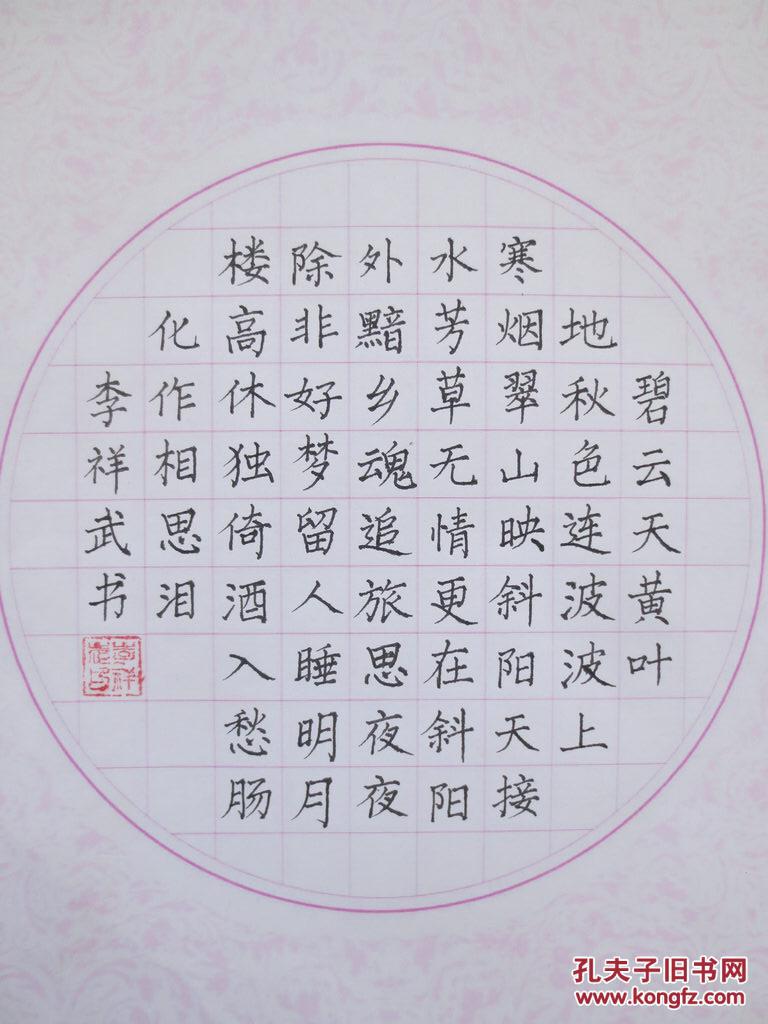 碧云天黄叶
地秋色连波波上
寒烟翠山映斜阳天接
水芳草无情更在斜阳
外黯乡魂追旅思夜夜
除非好梦留人睡明月
楼高休独倚酒入愁肠
化作相思泪
李祥武书
孔夫子旧书网
www.kongfz.com